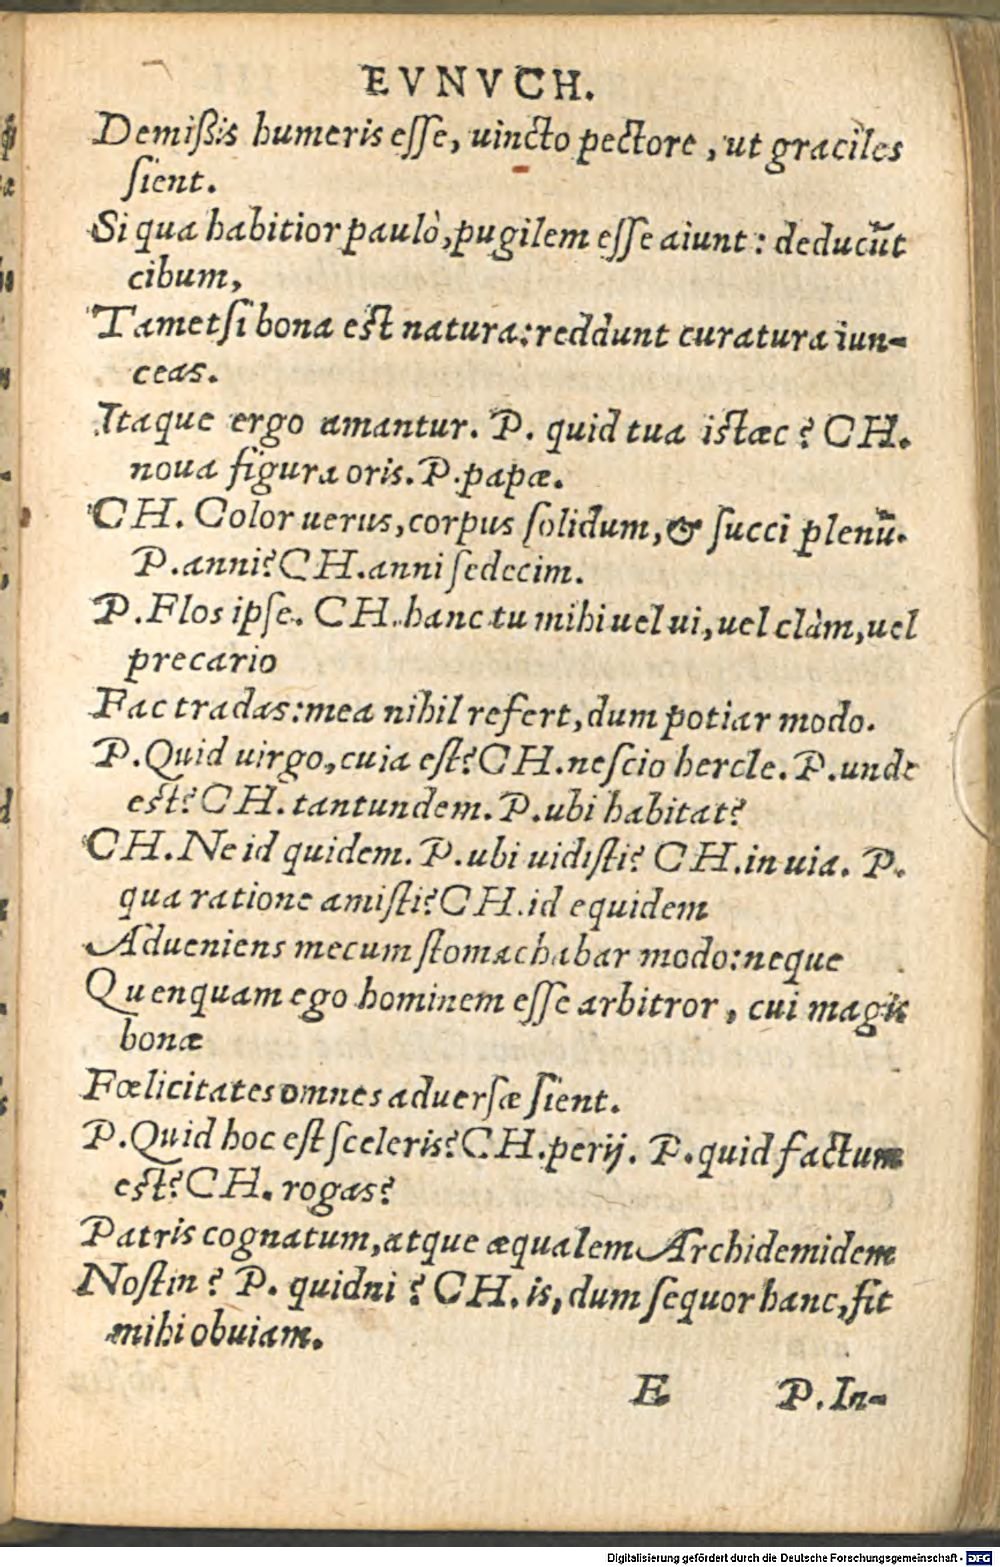 EVNVCH.
Demißis humeris eſſe, uincto pectore, ut graciles
ſient.
Si qua habitior paulò, pugilem eſſe aiunt: deducũt
cibum,
Tametſi bona est natura: reddunt curatura iun-
ceas.
Itaque ergo amantur. P. quid tua istæc? CH.
noua figura oris. P. papæ.
CH. Color uerus, corpus ſolidum, & ſucci plenũ.
P. anni? CH. anni ſedecim.
P. Flos ipſe. CH. hanc tu mihi uel ui, uel clàm, uel
precario
Fac tradas: mea nihil refert, dum potiar modo.
P. Quid uirgo, cuia eſt? CH. neſcio hercle. P. unde
est? CH. tantundem. P. ubi habitat?
CH. Ne id quidem. P. ubi uidiſti? CH. in uia. P.
qua ratione amiſti? CH. id equidem
Adueniens mecum ſtomachabar modo: neque
Quenquam ego hominem eſſe arbitror, cui magis
bonæ
Fœlicitates omnes aduerſæ ſient.
P. Quid hoc eſt ſceleris? CH. perij. P. quid factum
est? CH. rogas?
Patris cognatum, atque æqualem Archidemidem
Noſtin? P. quidni? CH. is, dum ſequor hanc, fit
mihi obuiam.
E P. In-
Digitalisierung gefördert durch die Deutsche Forschungsgemeinschaft - DFG